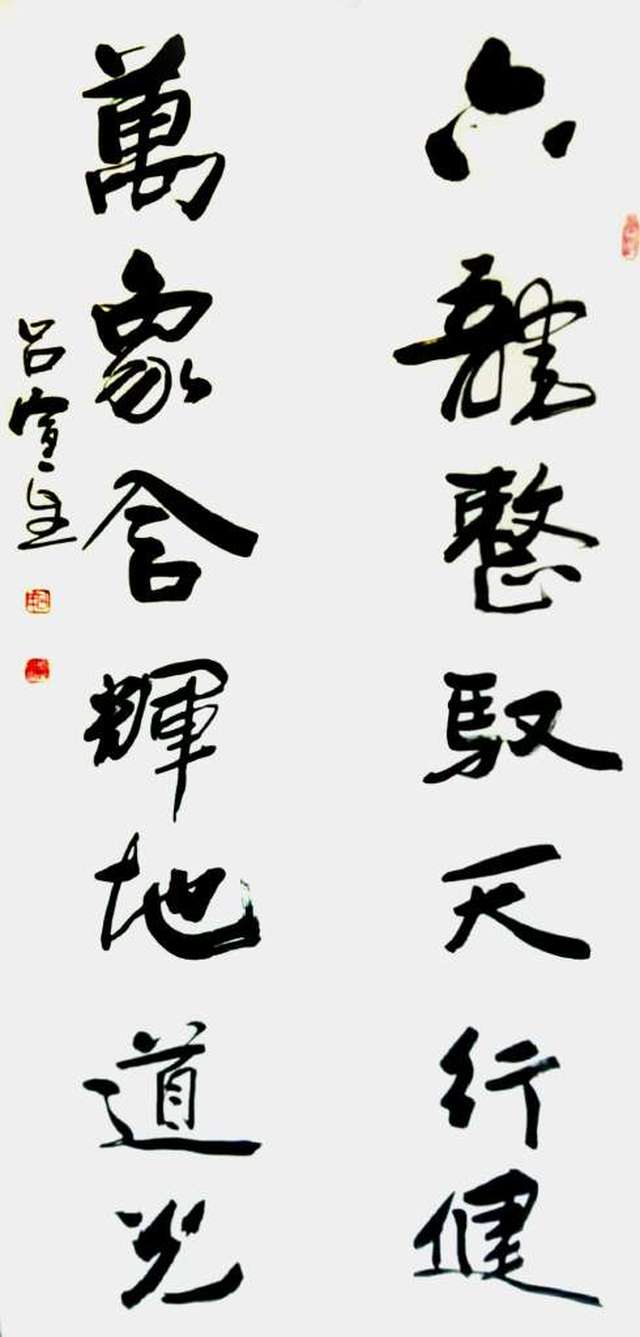 六龍整馭天行健
萬象含輝地道光
吕宣生